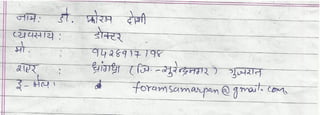 नाम: डॉ. फोरम दोशी
व्यवसाय: डॉक्टर
मो. : 9426917198
शहर : ध्रांगध्रा (जि.-सुरेन्द्रनगर) गुजरात
ई-मेल: foramsamarpan@gmail.com